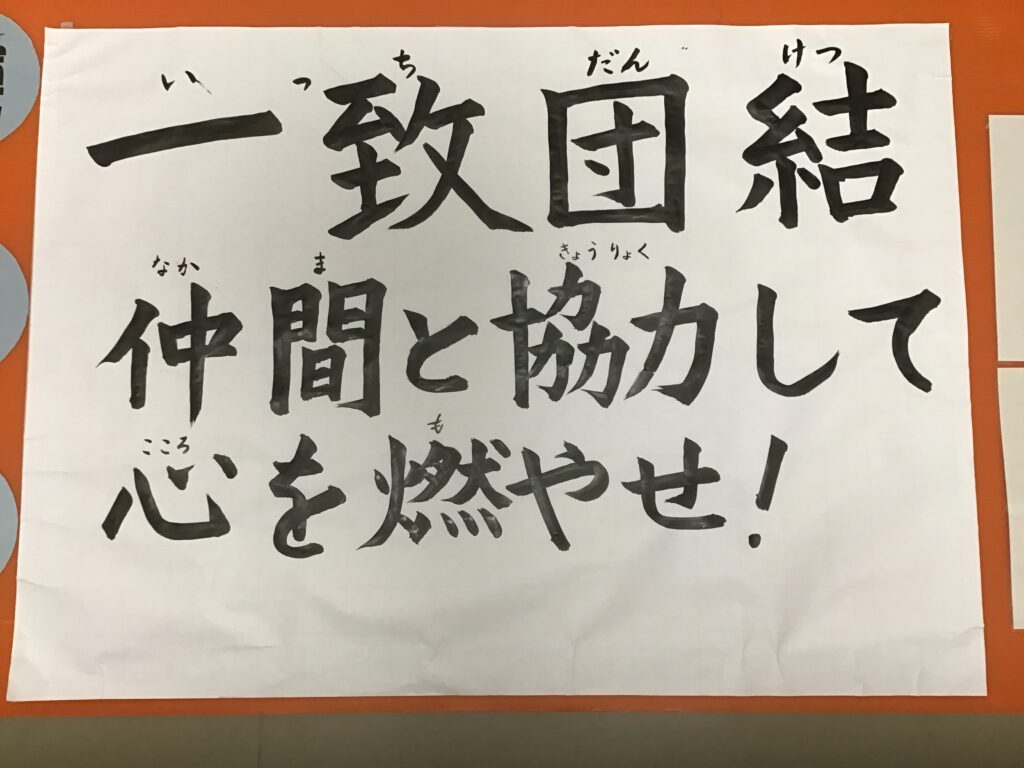 いっち だんけつ
一致団結
なかま きょうりょく
仲間と協力して
こころ も
心を燃やせ!